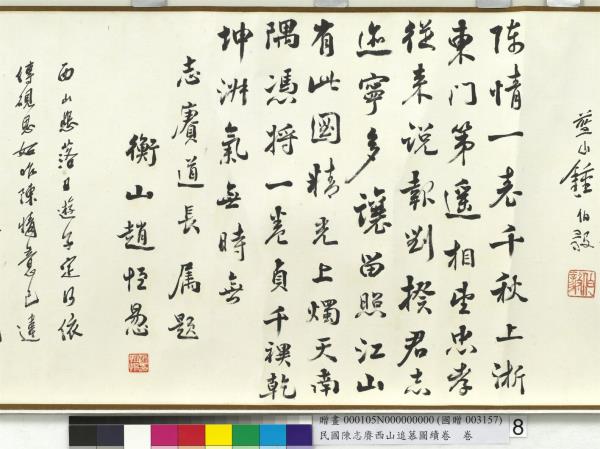 藍山鍾伯毅
陳情一表千秋上浙
東門第遥相望忠孝
從来説報劉揆君志
迹寧多讓留照江山
有此圖精光上燭天南
隅憑將一卷貞千禩乾
坤淑氣無時無
志賡道長属題
衡山趙恒惕
西山悲落日遊子定何依
停硯思如昨陳情意已違
贈畫 000105N000000000 (國贈 003157)
民國陳志賡西山追慕圖續卷 卷
8